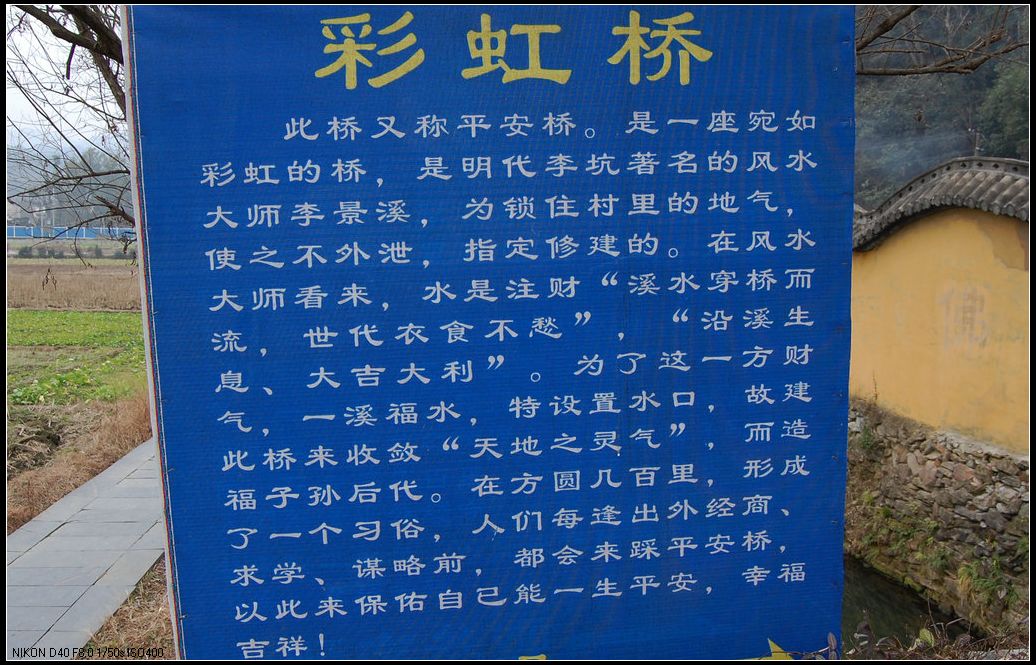 彩虹桥
此桥又称平安桥。是一座宛如
彩虹的桥，是明代李坑著名的风水
大师李景溪，为锁住村里的地气，
使之不外泄，指定修建的。在风水
大师看来，水是注财“溪水穿桥而
流，世代衣食不愁”，“沿溪生
息、大吉大利”。为了这一方财
气，一溪福水，特设置水口，故建
此桥来收敛“天地之灵气”，而造
福子孙后代。在方圆几百里，形成
了一个习俗，人们每逢出外经商、
求学、谋略前，都会来踩平安桥，
以此来保佑自己能一生平安，幸福
吉祥！
佛
NIKON D40 F8.0 1/50s ISO400